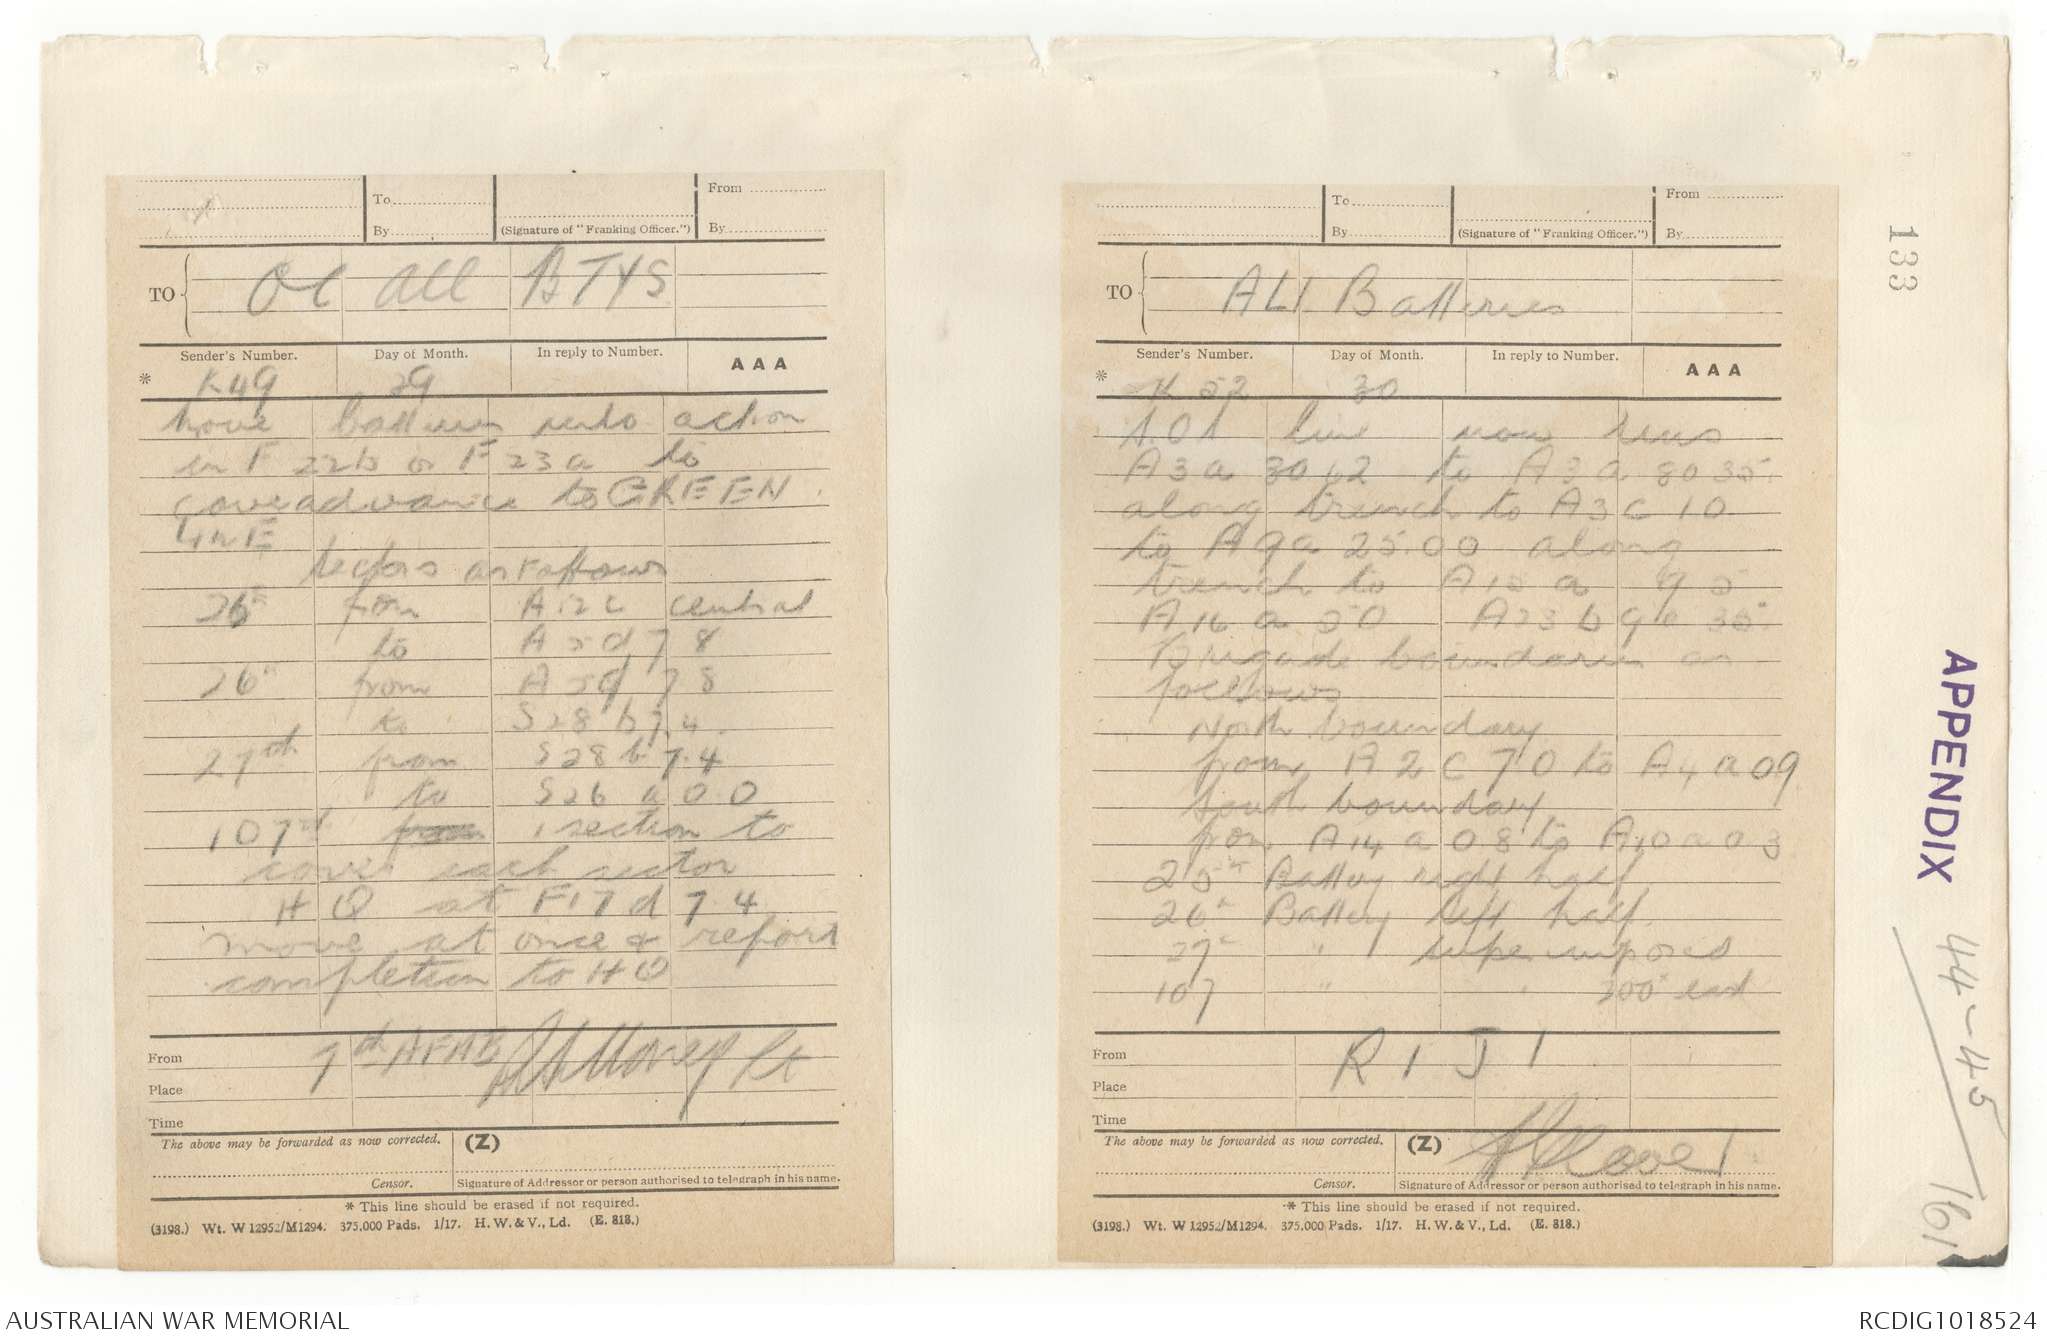 To
By
(Signature of "Franking Officer.")
From
By
TO
OC All BTYS
Sender's Number.
Day of Month.
In reply to Number.
AAA
* K49
29
Move Batteries into action
in F 22b or F 23a to
cover advance to GREEN
LINE
Sectors as follows
from A12c central
to A5d 7 8
26th from A5d 7 8
to S28b 7.4.
27th from S28b 7.4
to S26 a 0.0
107th from 1 section to
cover each sector
HQ at F17d 7.4
move at once & report
completion to HQ
From
7th AFAB
Lt
Place
Time
The above may be forwarded as now corrected.
(Z)
Censor.
Signature of Addressor or person authorised to telegraph in his name.
* This line should be erased if not required.
(3198.) Wt. W 12952/M1294. 375,000 Pads. 1/17. H. W. & V., Ld. (E. 818.)
To
By
(Signature of "Franking Officer.")
From
By
TO
ALL Batteries
Sender's Number.
Day of Month.
In reply to Number.
AAA
* K 52
30
line now runs
A3a 30 62 to A3a 80 35.
along trench to A3c 10
to A9a 25.00 along
trench to A15a 95
A16a 50 A23b 90 35.
Brigade boundaries as
follows
North boundary
from A2c 7.0 to A4a 09
South boundary
from A14a 08 to A10a 03
25th Battery right half
26th Battery left half.
27th " superimposed
107 " " 300x east
From
RIJI
Place
Time
The above may be forwarded as now corrected.
(Z)
Censor.
Signature of Addressor or person authorised to telegraph in his name.
* This line should be erased if not required.
(3198.) Wt. W 12952/M1294. 375,000 Pads. 1/17. H. W. & V., Ld. (E. 818.)
133
APPENDIX 44-45
161
AUSTRALIAN WAR MEMORIAL
RCDIG1018524